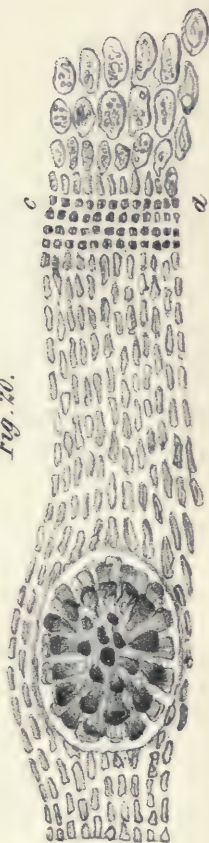 Fig. 20.
c
a